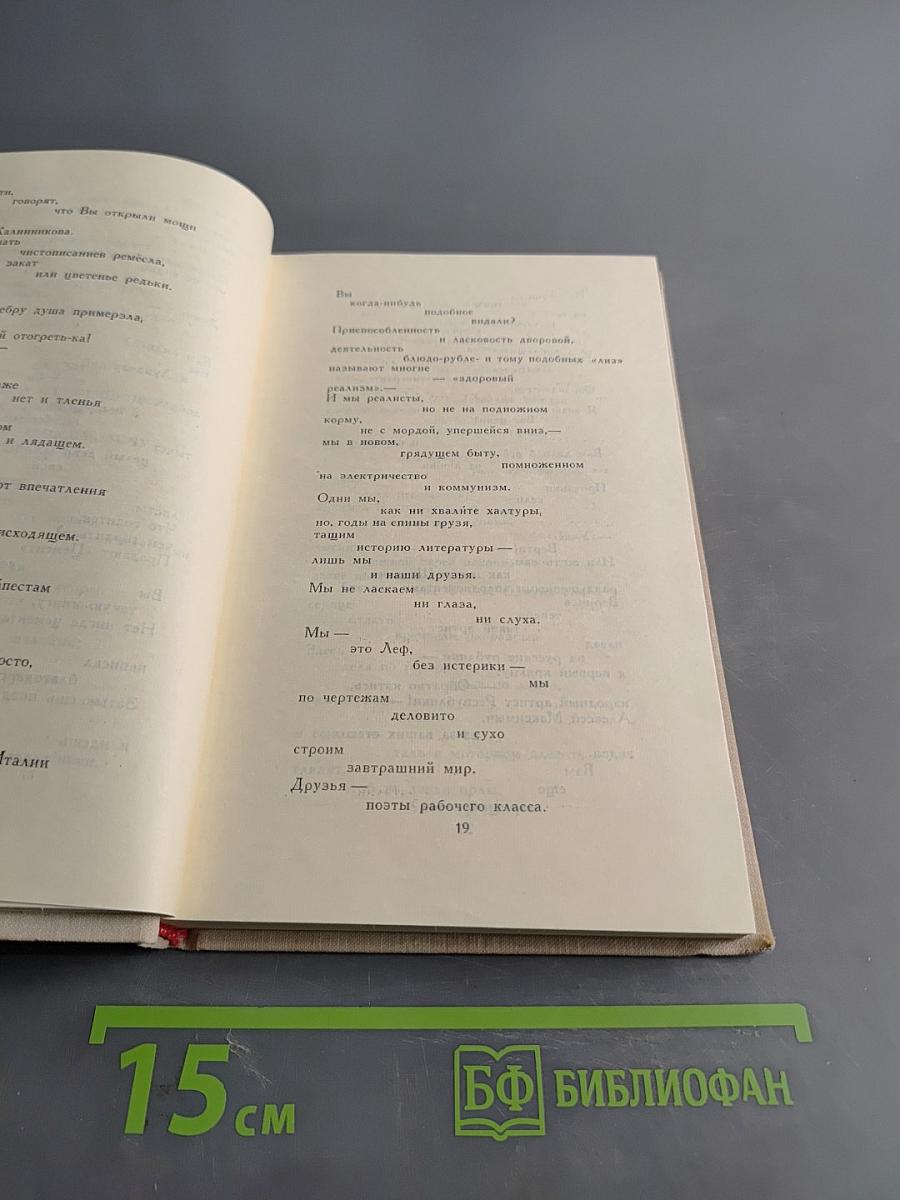 говорят,
что Вы открыли мощи
Калинникова.
чистописаниев ремёсла,
закат
или цветенье редьки.
душа примерзла,
отогреть-ка!
—
нет и тленья
и лядащем.
от впечатления
Италии
Вы
когда-нибудь
подобное
видали?
Приспособленность
и ласковость дворовой,
деятельность
блюдо-рубле- и тому подобных «лиз»
называют многие
— «здоровый
реализм».—
И мы реалисты,
но не на подножном
корму,
не с мордой, упершейся вниз,—
мы в новом,
грядущем быту,
помноженном
на электричество
и коммунизм.
Одни мы,
как ни хвалите халтуры,
но, годы на спины грузя,
тащим
историю литературы —
лишь мы
и наши друзья.
Мы не ласкаем
ни глаза,
ни слуха.
Мы —
это Леф,
без истерики —
мы
по чертежам
деловито
и сухо
строим
завтрашний мир.
Друзья —
поэты рабочего класса.
19
15 см
БФ БИБЛИОФАН